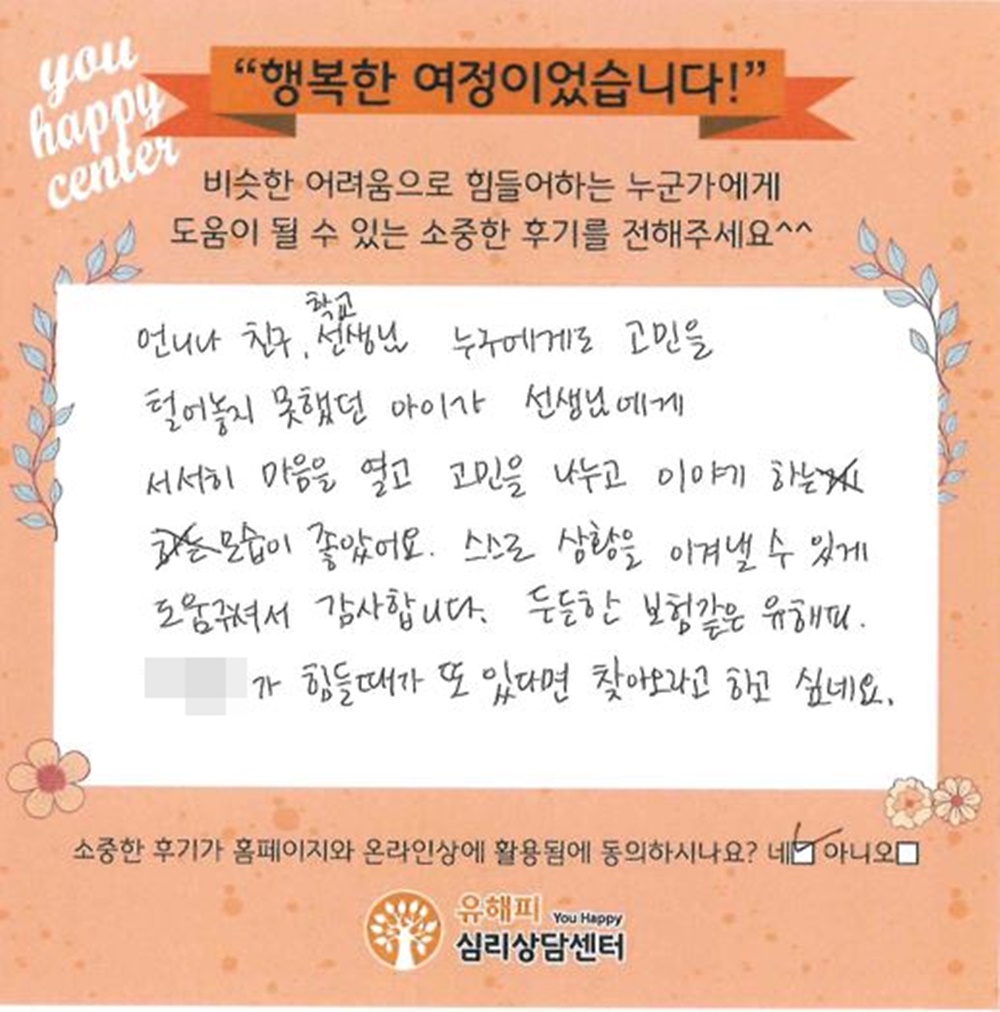 you
happy
center
“행복한 여정이었습니다!”
비슷한 어려움으로 힘들어하는 누군가에게
도움이 될 수 있는 소중한 후기를 전해주세요^^
학교
언니나 친구, 선생님 누구에게도 고민을
털어놓지 못했던 아이가 선생님에게
서서히 마음을 열고 고민을 나누고 이야기 하는
모습이 좋았어요. 스스로 상황을 이겨낼 수 있게
도움주셔서 감사합니다. 든든한 보험같은 유해피.
가 힘들때가 또 있다면 찾아오라고 하고 싶네요.
소중한 후기가 홈페이지와 온라인상에 활용됨에 동의하시나요? 네 아니오
유해피 You Happy
심리상담센터